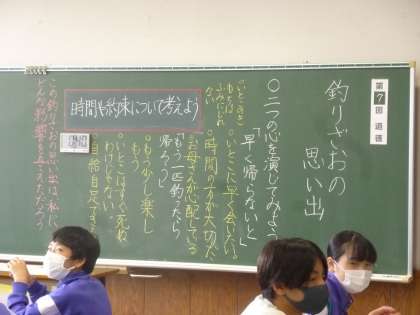 第7回 道徳
釣りざおの
思い出
○二つの心を演じてみよう
「早く帰らないと」
○いとこに早く会いたい。
○時間の方が大切だ。
お母さんが心配している
「もう一匹釣ったら
帰ろう」
○もう少し楽し
もう
○いとこはすぐ死ぬ
わけじゃない。
自給自足できる
時間や約束について考えよう
この釣りざおの思い出は、私に
どんな影響を与えただろう